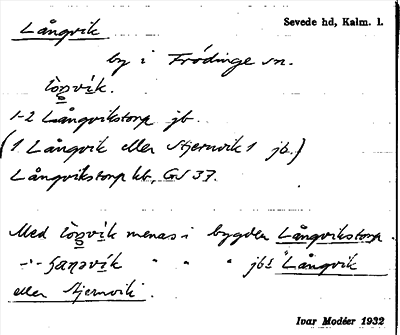 Långvik
Sevede hd, Kalm. l.
by i Frödinge sn.
lòŋvík.
1-2 Långvikstorp jb
(1 Långvik eller Stjernvik 1 jb.)
Långvikstorp kb, GS 37.
Med lòŋvík menas i bygden Långvikstorp.
-"- " " " jb:s "Långvik
eller Stjernvik".
Ivar Modéer 1932